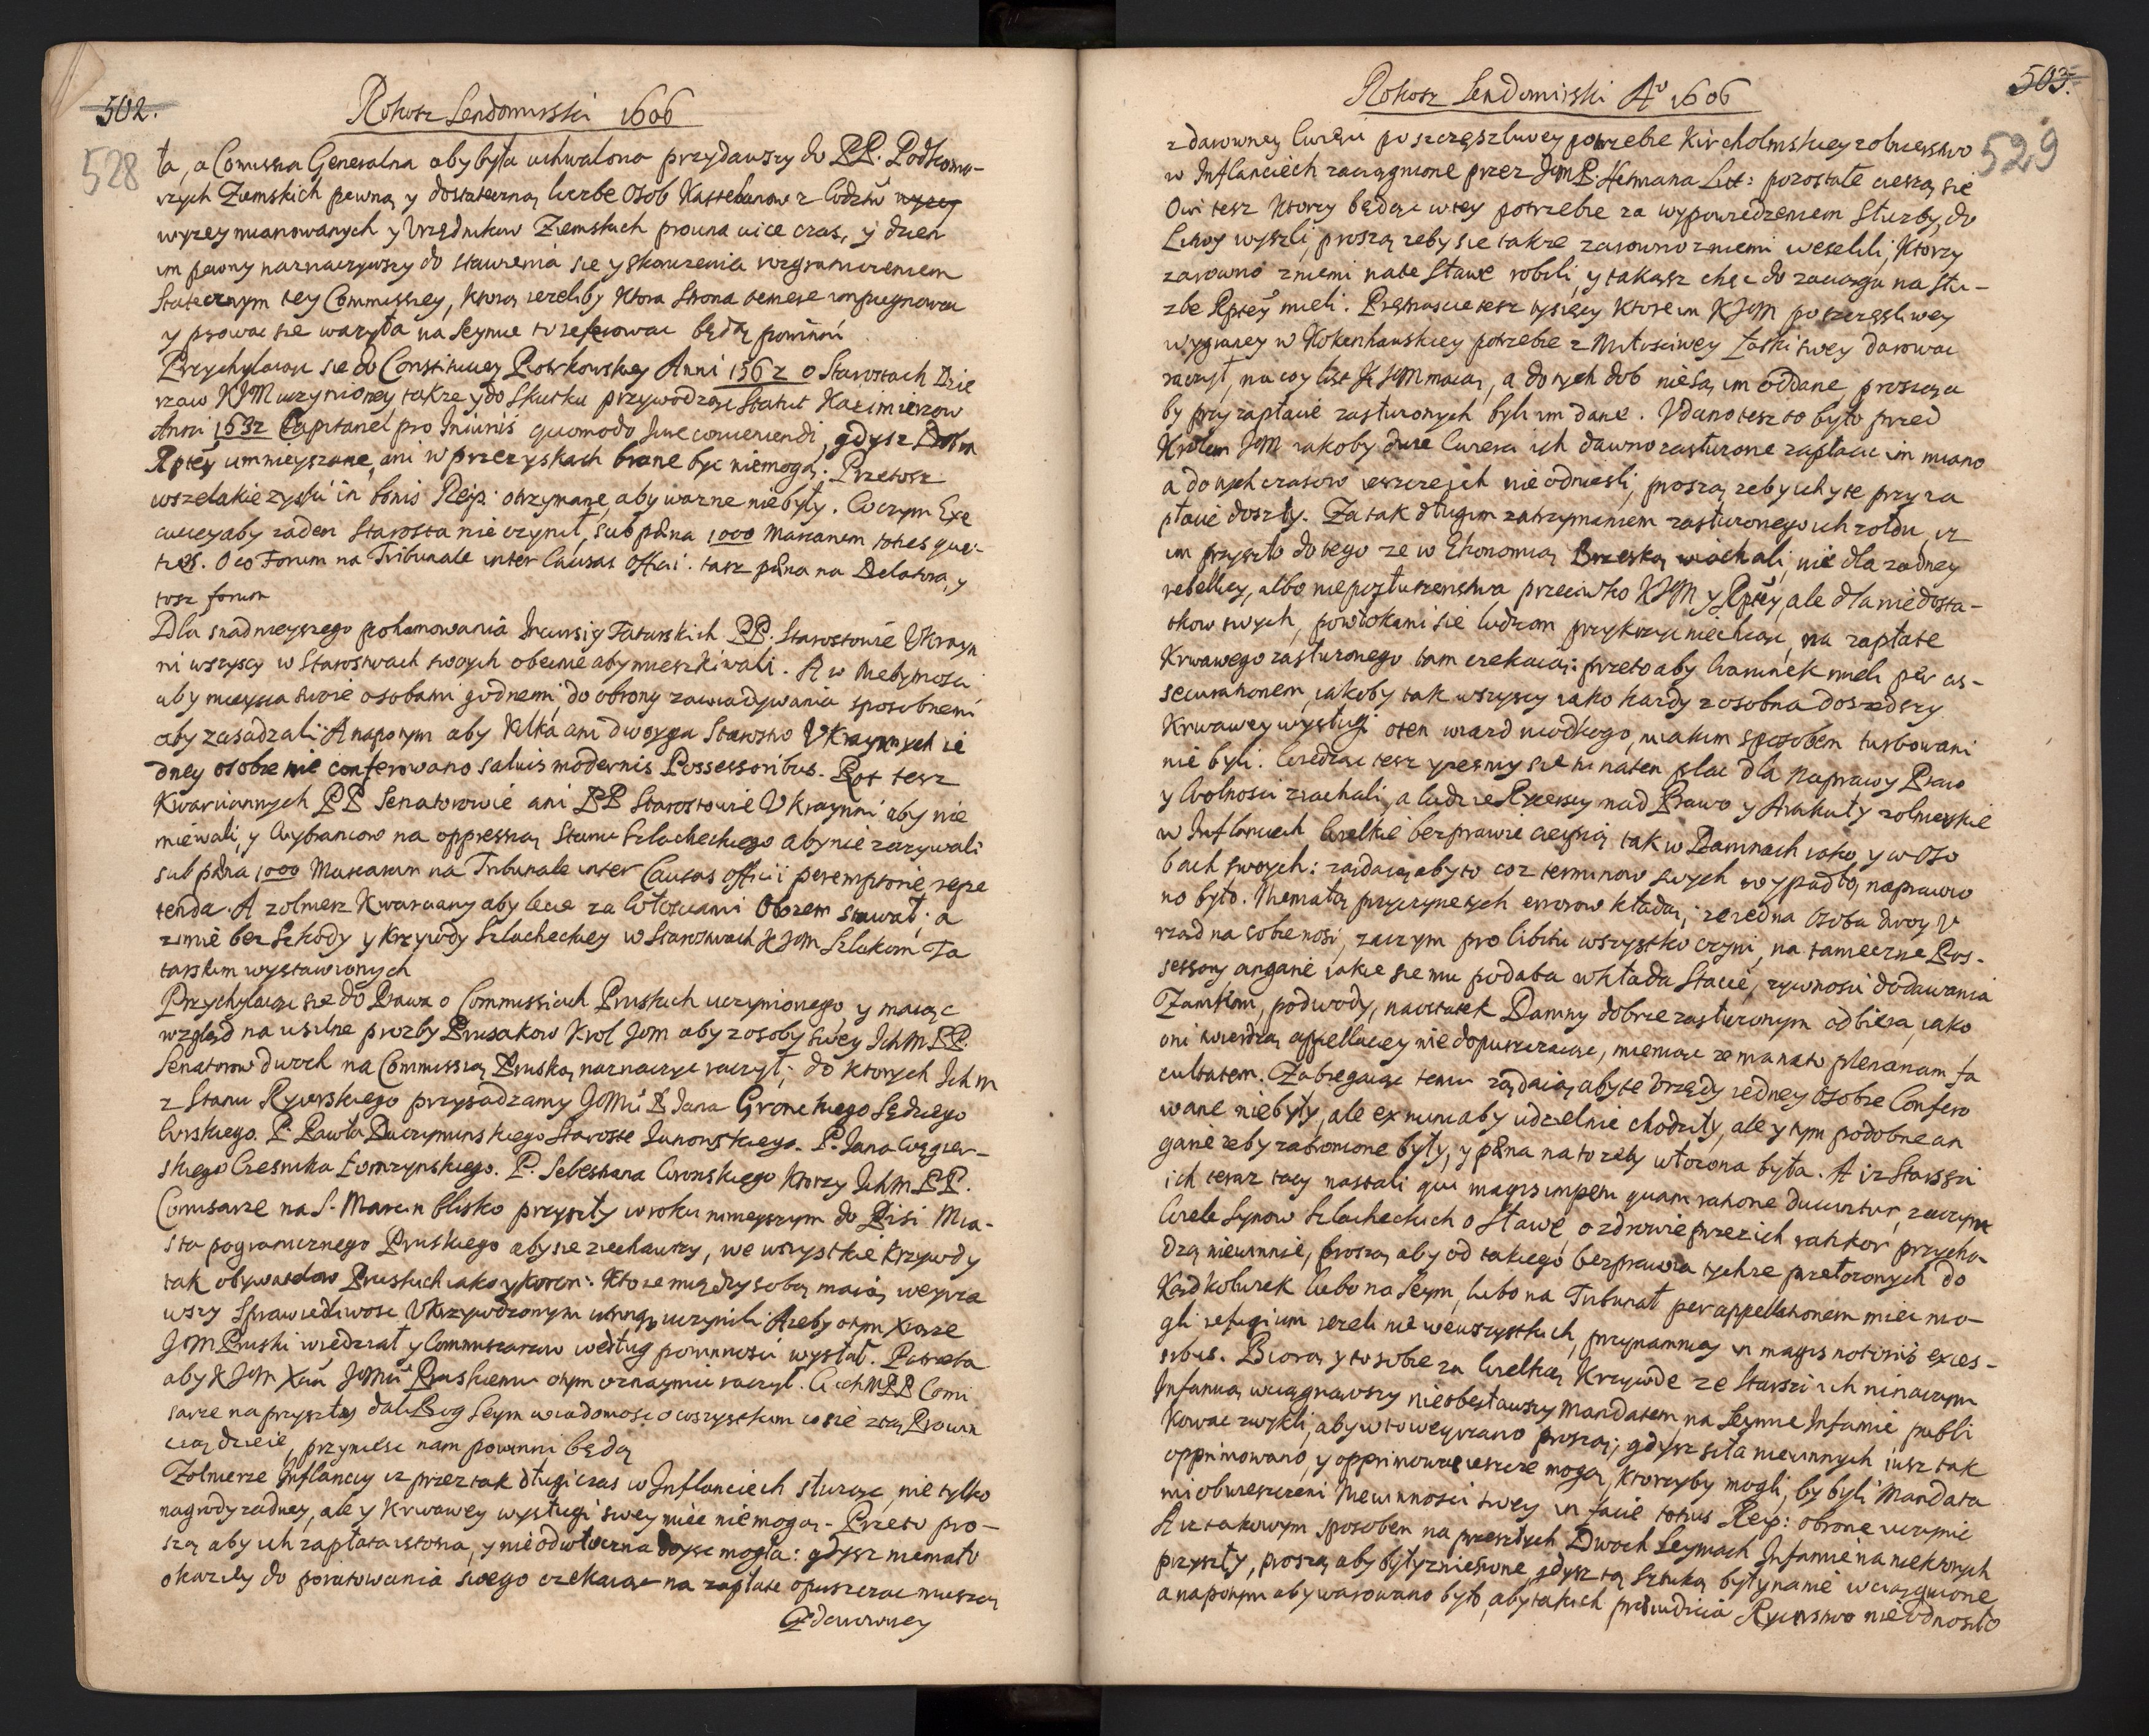 502.
Rokosz Sendomirski 1606
528
ta, a Comissia Generalna aby była uchwalona przydawszy do PP. Podkomo-
rzych Ziemskich pewną y dostateczną liczbe Osob Kasztelanow z
wyzey mianowanych y Urzędnikow Ziemskich czas, y dzien
im pewny naznaczywszy do stawienia sie y skonczenia rozgraniczeniem
Statecznym tey Commissiey, ktorą iezeliby ktora Strona temere impugnowac
y psowac sie wazyła na Seymie to referowac będą powinni
Przychylaiąc sie do Constituciey Piotrkowskiey Anni 1562 o Starostach Dzie
rzaw KJM uczynioney także y do Skutku przywodząc Statut Kazimierzow
Anni 1532 Capitanei pro Iniuriis quomodo Iure conveniendi, gdysz Dobra
Rptey umnieyszane, ani w przezyskach brane byc niemogą. Przetosz
wszelakie zyski in bonis Reip: otrzymane, aby wazne niebyły. Oczym Exe
cuciey aby zaden Starosta nie czynił, sub pæna 1000 Marcarum toties quo-
ties. O co Forum na Tribunale inter Causas Officii. tasz pæna na Delatora, y
tosz forum
Dla snadnieyszego pohamowania Incursiy Tatarskich PP. Starostowie Ukrayn
ni wszyscy w Starostwach swoych obecnie aby mieszkiwali. A w Niebytnosci
aby mieysca swoie osobami godnemi, do obrony zawiadywania sposobnemi
aby zasadzali. A napotym aby kilka ani dwoyga Starostw Ukraynnych ie
dney osobie nie conferowano salvis modernis Possessoribus. Rot tesz
Kwarciannych PP Senatorowie ani PP Starostowie Ukraynni aby nie
miewali, y Wybrancow na oppressią Stanu Szlacheckiego aby nie zazywali
sub pæna 1000 Marcarum na Tribunale inter Causas officii peremptorie repe
tenda. A zolnierz Kwarciany aby lecie za Włosciami Obozem stawał; a
zimie bez Szkody y Krzywdy Szlacheckiey w Starostwach KJM Szlakom Ta
tarskim wystawionych
Przychylaiąc sie do Prawa o Commissiach Pruskich uczynionego, y maiąc
wzgląd na usilne prozby Prusakow Krol JM aby z osoby swey Ich M PP.
Senatorow dwoch na Commissią Pruską naznaczyc raczył; do ktorych Ich m
z Stanu Rycerskiego przysadzamy JoMci P Jana Gronckiego Sędziego
P: Pawła Starosте P. Jana Węgier-
skiego Czesnika Łomzynskiego. P. Sebestiana Wronskiego Ktorzy Ich M PP.
Comisarze na S. Marcin blisko przyszły w roku ninieyszym do Pisi Mia-
sta pogranicznego Pruskiego aby sie ziechawszy, we wszystkie Krzywdy
tak obywatelow Pruskich iako y koron: Ktore między sobą maią weyrza
wszy Sprawiedliwosc Ukrzywdzonym uczynili. A zeby otym Xiąże
JM Pruski wiedział y Commissarzow według powinnosci wysłał. Potrzeba
aby KJM Xciu JoMci Pruskiemu otym oznaymic raczył. A Ich M PP Comi
sarze na przyszły da Bog Seym wiadomosc o wszystkim co sie z tą Prowin
cią dzieie, przyniesc nam powinni będą
Zolnierze Inflanccy iz przez tak długi czas w Inflanciech słuząc, nie tylko
nagrody zadney, ale y Krwawey wysługi swey miec niemogą. Przeto pro-
szą aby ich zapłata istotna, y nieodwłoczna doysc mogła: gdysz niemało
okaziey do poratowania swego czekaiąc na zapłate opuszczac muszą
Zdarowney
503.
Rokosz Sendomirski A° 1606
529
z darowney Cwierci po szczęszliwey potrzebie Kircholmskiey zolnierstwo
w Inflanciech zaciągnione przez JmP. Hetmana Litt: pozostałe cieszą się
Owi tesz ktorzy będąc w tey potrzebie za wypowiedzeniem Słuzby, do
Litwy wyszli, proszą zeby sie takze zarowno zniemi weselili, Ktorzy
zarowno zniemi na te Sławe robili, y takąsz chęc do zaciągu na słu-
zbe Rptey mieli. Piętnascie tesz tysięcy ktore im KJM po szczęśliwey
wygraney w Kokenhauskiey potrzebie z Miłosciwey Łaski swey darowac
raczył, na coy list KJM maią, a do tych dob niesą im oddane, proszą a
by przy zapłacie zasłuzonych byli im dane. Udano tesz to było przed
Krolem JM iakoby dwie Cwierci ich dawno zasłuzone zapłacic im miano
a do tych czasow ieszcze ich nie odniesli, proszą zeby ich y te przy za
płacie doszły. Za tak długim zatrzymaniem zasłuzonego ich zołdu, iz
im przyszło do tego ze w Ekonomią Brzeską wiechali, nie dla zadney
rebelliey, albo nieposłuszenstwa przeciwko KJM y Rptey, ale dla niedosta-
tkow swych, powłokami sie ludziom przykrzyc niechcąc, na zapłate
Krwawego zasłuzonego tam czekaią; przeto aby Warunek mieli per as-
securationem, iakoby tak wszyscy iako kazdy z osobna doszedszy
Krwawey wysługi o ten wiazd niodkogo, niakim sposobem turbowani
nie byli. Wiedząc tesz ześmy sie tu na ten plac dla Naprawy Praw
y Wolnosci ziachali, a ludzie Rycerscy nad Prawo y Artykuły zolnierskie
w Inflanciech Wielkie bezprawie cierpią tak w Daninach iako y w Oso
bach swoych: ządaią aby to co z terminow swych wypadło, naprawio
no było. Niemałą przyczyne tych errorow kładą, ze iedna Osoba dwoy U
rząd na sobie nosi, zaczym pro libitu wszystko czyni, na tameczne Pos-
sessory angarie iakie sie mu podaba wkłada Stacie, zywnosci dodawania
Zamkom, podwody, naostatek Daniny dobrze zasłuzonym odbiera, iako
oni twierdzą appellaciey nie dopuszczaiąc, mieniąc ze ma na to plenariam fa
cultatem. Zabiegaiąc temu ządaią aby te Urzędy iedney osobie Confero
wane niebyły, ale ex nunc aby udzielnie chodziły, ale y tym podobne an
garie zeby zabronione były, y pæna na to zeby włozona była. A iz Starszi
ich teraz tacy nastali qui magis impetu quam ratione ducuntur, zaczym
Wiele Synow Szlacheckich o Sławę o zdrowie przez ich rankor przycho
dzą niewinnie, proszą aby od takiego bezprawia tychze przełozonych do
Kądkolwiek lubo na Seym, lubo na Tribunał per appellationem miec mo-
gli refugium iezeli nie we wszystkich, przynamniey in magis notoriis exces-
sibus. Biorą y to sobie za Wielką Krzywde ze Starszi ich ninaczym
Infamią wciągnąwszy nieobesławszy Mandatem na Seymie Infamie publi
kowac zwykli, aby w to weyrzano proszą; gdysz siła niewinnych iusz tak
opprimowano, y opprimowac ieszcze mogą, ktorzyby mogli, by byli Mandata
mi obwieszczeni Niewinnosci swey in facie totius Reip: obrone uczynic
A iz takowym sposobem na przeszłych Dwoch Seymach Infamie na niektorych
przyszły, proszą aby były zniesione, gdysz tą sztuką były na nie wciągnione
a napotym aby warowano było, aby takich preiudicia Rycerstwo nie odnosiło